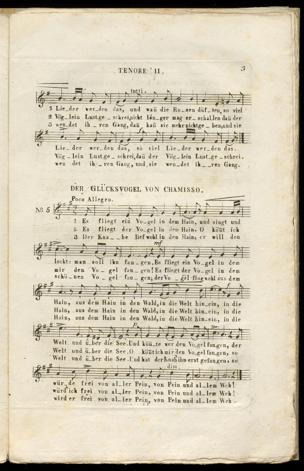 TENORE II.
3
tutti.
1 Lie_der wer_den das, und was die Ro_sen düf_ten, so viel
2 Vög_lein Lustge_schrei, nicht hin_ger mag er_schal_len daß der
3 wen_det ih_ren Gang, daß
Lie_der wer_den das, so viel Lie_der wer_den das.
Vög_lein Lust_ge_schrei, daß der Vög_lein Lust_ge_schrei.
wen_det ih_ren Gang, und sie wen_det ih_ren Gang.
DER GLÜCKSVOGEL VON CHAMISSO.
Poco Allegro.
No 5
1 Es fliegt ein Vo_gel in dem Hain, und singt und
2 Es fliegt der Vo_gel in dem Hain. O könt ich
3 Der Kna_be lief wohl in den Hain, er will den
lockt: man soll ihn fan_gen. Es fliegt ein Vo_gel in dem
mir den Vo_gel fan_gen! Es fliegt der Vo_gel in dem
schö_nen Vo_gel fan_gen, der Vo_gel flog wohl aus dem
mf
Hain, aus dem Hain in den Wald, in die Welt hin_ein, in die
Hain, aus dem Hain in den Wald, in die Welt hin_ein, in die
Hain, aus dem Hain in den Wald, in die Welt hin_ein, in die
Welt und ü_ber die See. Und kön_te wer den Vo_gel fan_gen, der
Welt und ü_ber die See. O könt ich mir den Vo_gel fan_gen, so
Welt und ü_ber die See. Und hat der
dim.
wür_de frei von al_ler Pein, von Pein und al_lem Weh!
würd' ich frei von al_ler Pein, von Pein und al_lem Weh!
wird er frei von al_ler Pein, von Pein und al_lem Weh.